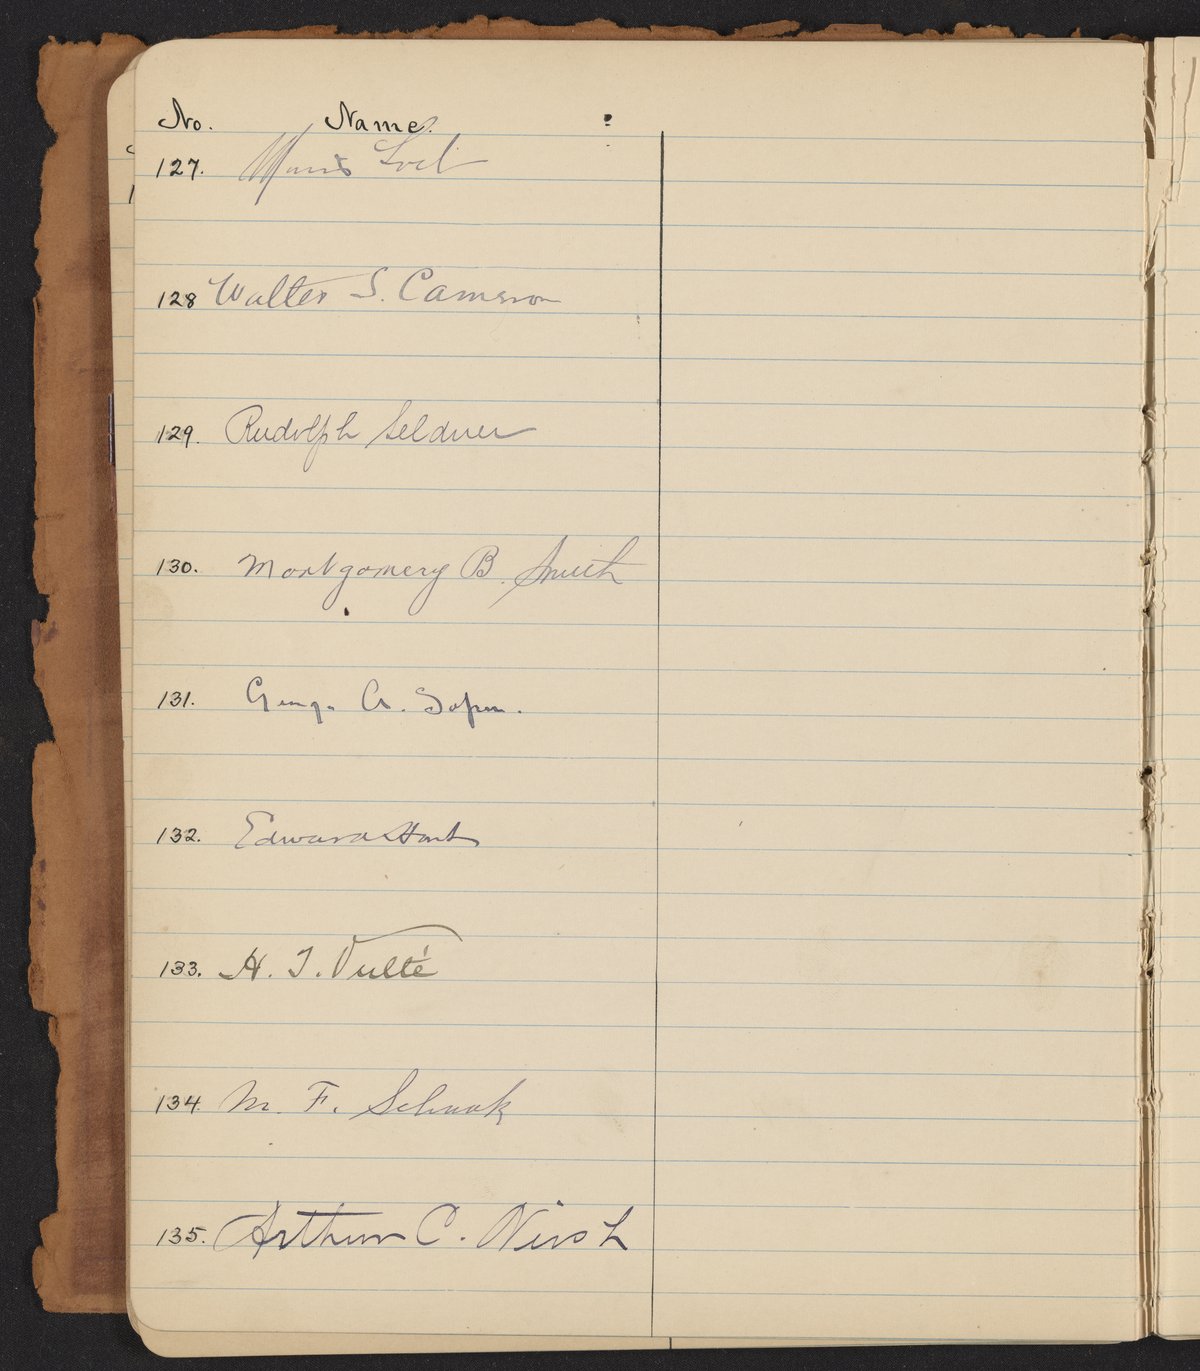 No. Name.
127. Morris Loeb
128 Walter S. Cameron
129. Rudolph Seldner
130. Montgomery B. Smith
131. George A. Soper.
132. Edward Hart
133. H. T. Vulté
134. M. F. Schaak
135. Arthur C.